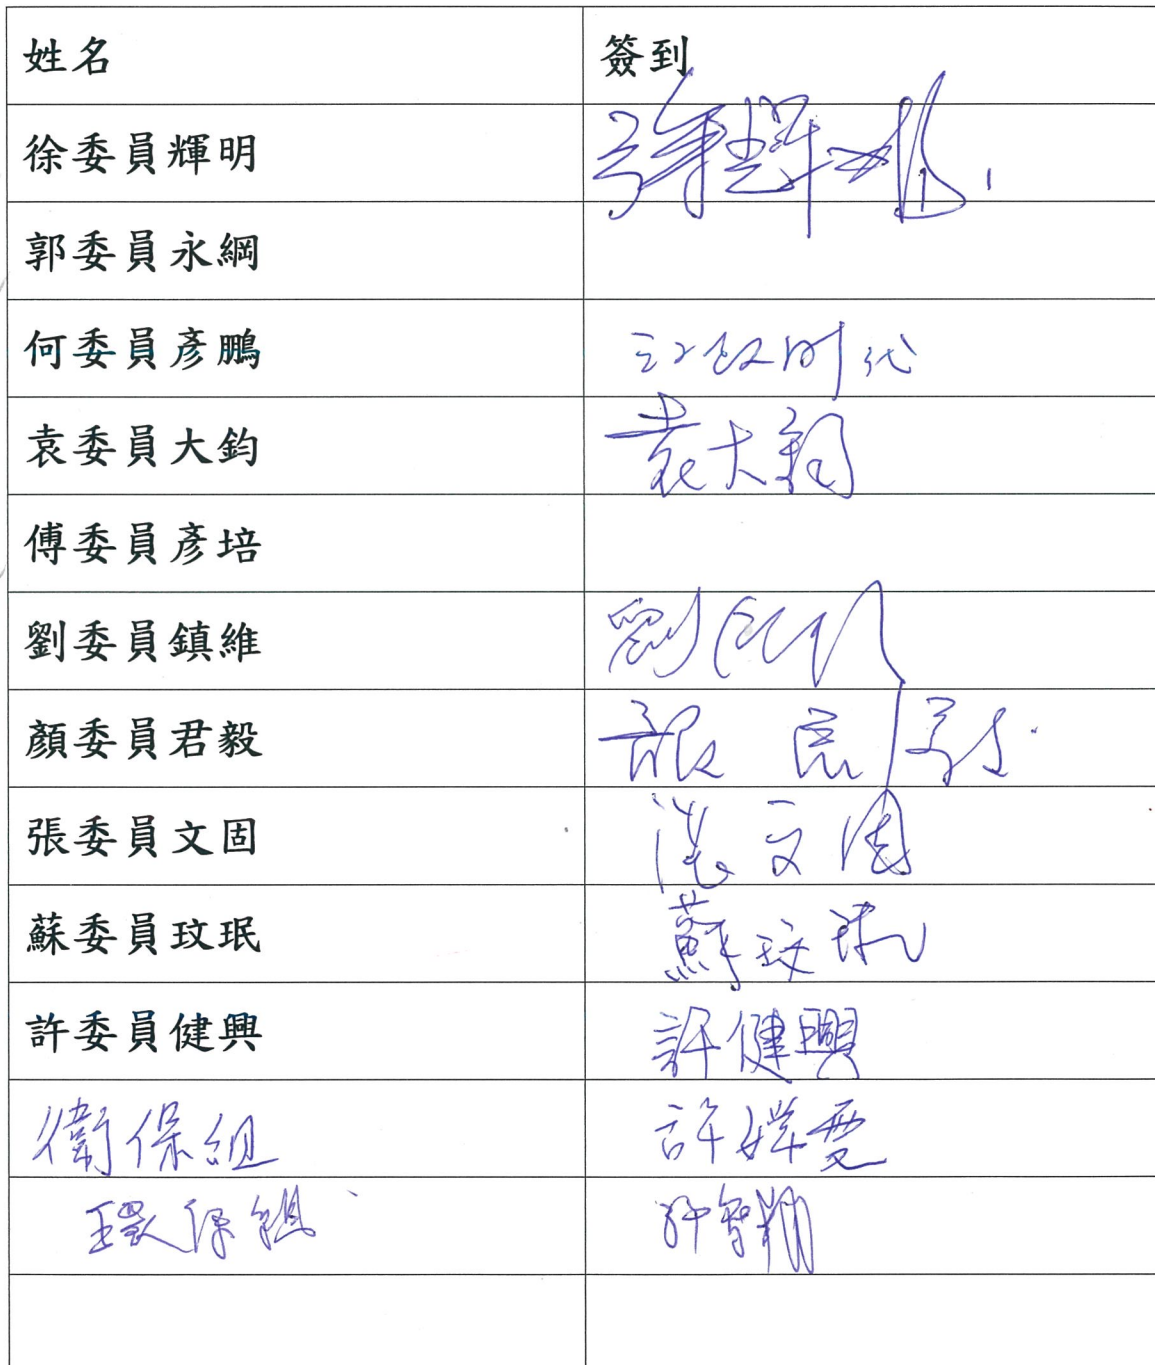 姓名 簽到
徐委員輝明 徐輝明
郭委員永綱
何委員彥鵬 代
袁委員大鈞 袁大鈞
傅委員彥培
劉委員鎮維 劉
顏委員君毅
張委員文固 張文固
蘇委員玟珉 蘇玟珉
許委員健興 許健興
衛保組 許
環保組 許